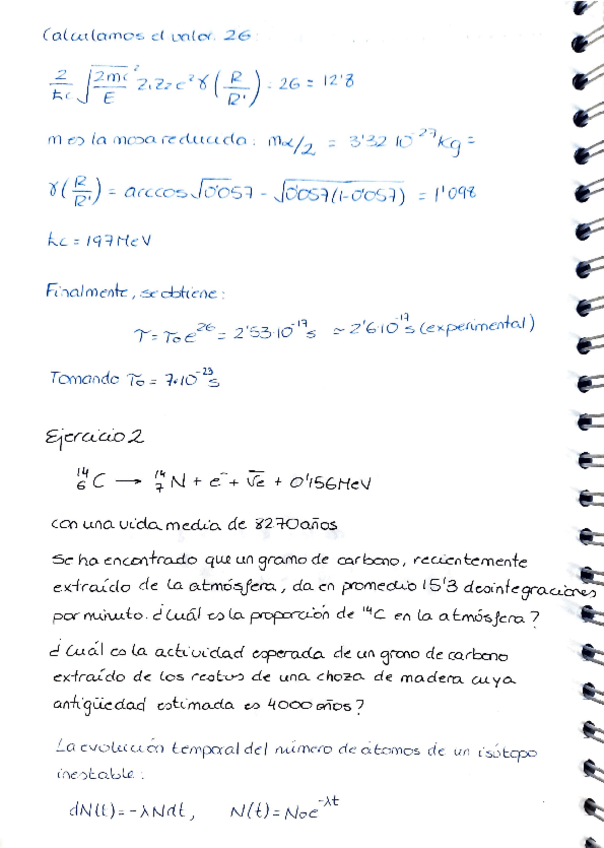 Calculamos el valor 2G:
2/ħc √(2mc²/E) Z₁Z₂e²γ(R/R'): 2G = 12'8
m es la masa reducida: mα/2 = 3'32 10⁻²⁷ Kg =
γ(R/R') = arccos √0'057 - √(0'057(1-0'057)) = 1'098
ħc = 197 MeV
Finalmente, se obtiene:
τ = τ₀ e^2G = 2'53·10⁻¹⁷ s ≃ 2'6·10⁻¹⁷ s (experimental)
Tomando τ₀ = 7·10⁻²³ s
Ejercicio 2
¹⁴₆C → ¹⁴₇N + e⁻ + ν̄e + 0'156 MeV
con una vida media de 8270 años
Se ha encontrado que un gramo de carbono, recientemente
extraído de la atmósfera, da en promedio 15'3 desintegraciones
por minuto. ¿Cuál es la proporción de ¹⁴C en la atmósfera?
¿Cuál es la actividad esperada de un grano de carbono
extraído de los restos de una choza de madera cuya
antigüedad estimada es 4000 años?
La evolución temporal del número de átomos de un isótopo
inestable:
dN(t) = -λNdt, N(t) = N₀e^-λt